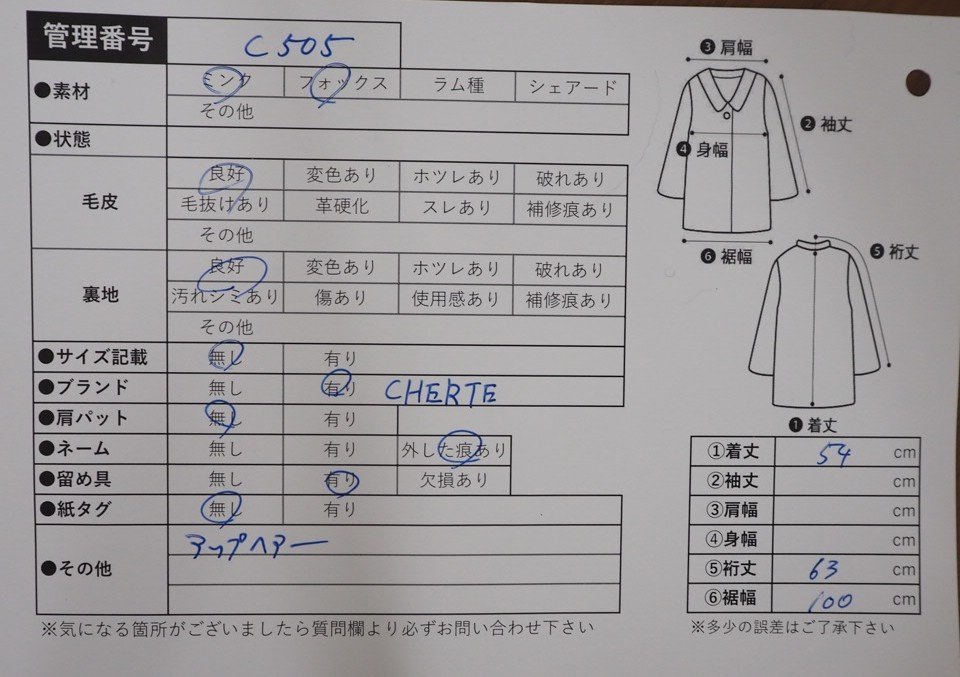 管理番号 C505
●素材 ミンク フォックス ラム種 シェアード
その他
●状態
毛皮 良好 変色あり ホツレあり 破れあり
毛抜けあり 革硬化 スレあり 補修痕あり
その他
裏地 良好 変色あり ホツレあり 破れあり
汚れシミあり 傷あり 使用感あり 補修痕あり
その他
●サイズ記載 無し 有り
●ブランド 無し 有り CHERTE
●肩パット 無し 有り
●ネーム 無し 有り 外した痕あり
●留め具 無し 有り 欠損あり
●紙タグ 無し 有り
●その他 アップヘアー
※気になる箇所がございましたら質問欄より必ずお問い合わせ下さい
❸肩幅
❷袖丈
❹身幅
❻裾幅
❺裄丈
❶着丈
①着丈 54 cm
②袖丈 cm
③肩幅 cm
④身幅 cm
⑤裄丈 63 cm
⑥裾幅 100 cm
※多少の誤差はご了承下さい